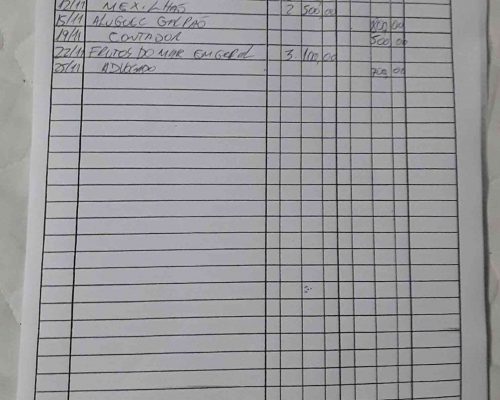 12/11 MEXILHÃO 2 500,00
15/11 ALUGUEL GALPÃO
19/11 CONTADOR 500,00
22/11 FRUTOS DO MAR EM GERAL 3 100,00
25/11 ADVOGADO 700,00